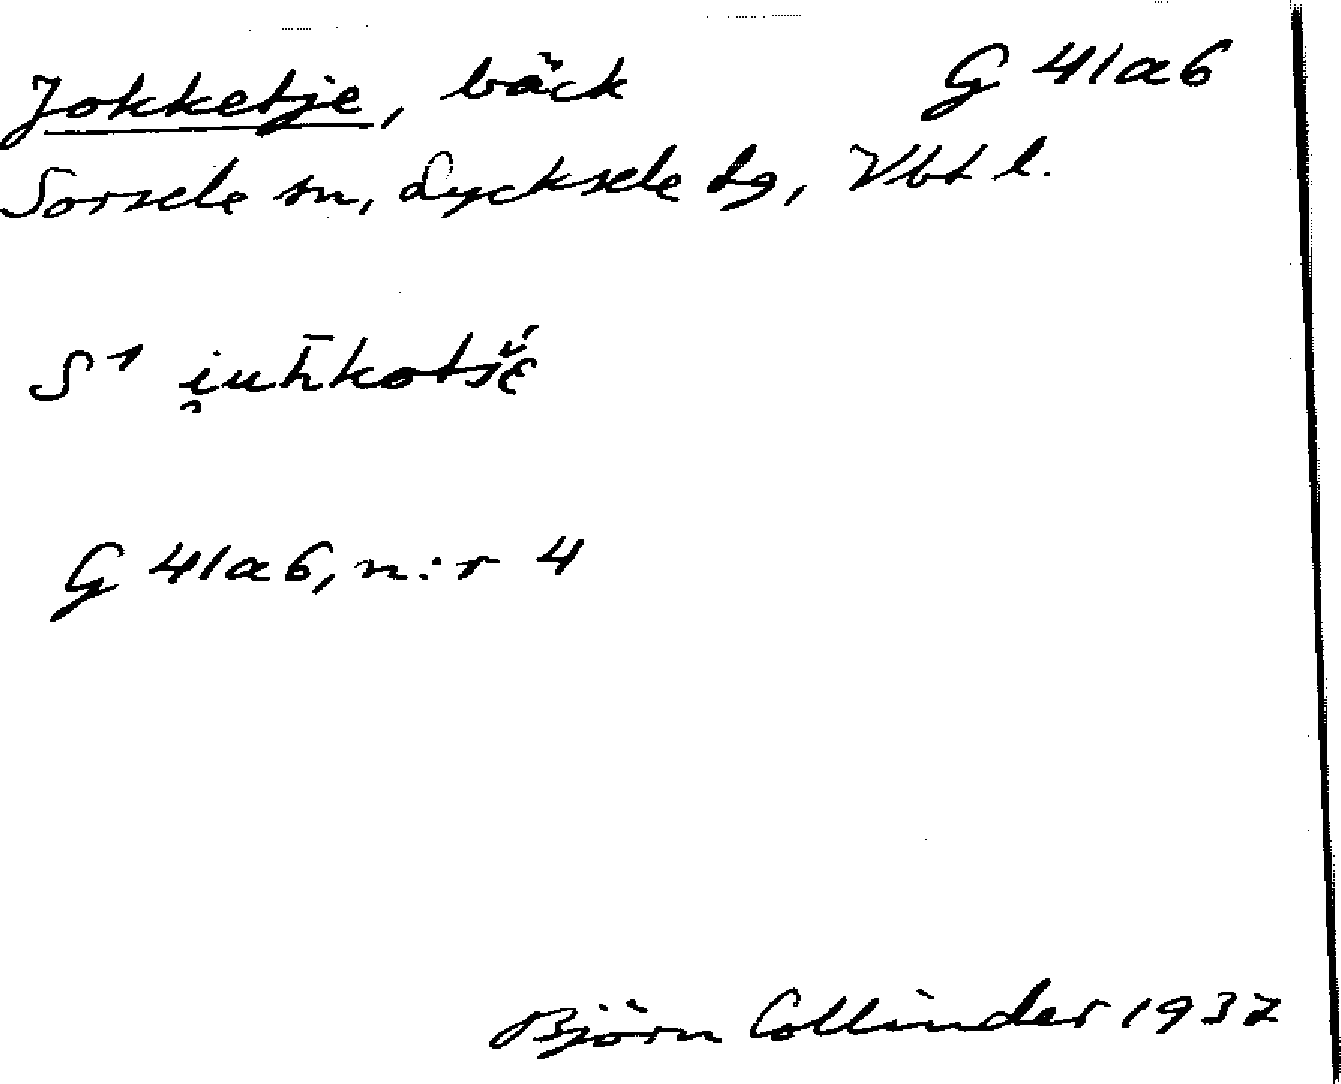 Jokketje, bäck G 41a6
Sorsele sn, Lycksele dg, Vbt l.
S1
G 41a6, n:r 4
Björn Collinder 1937